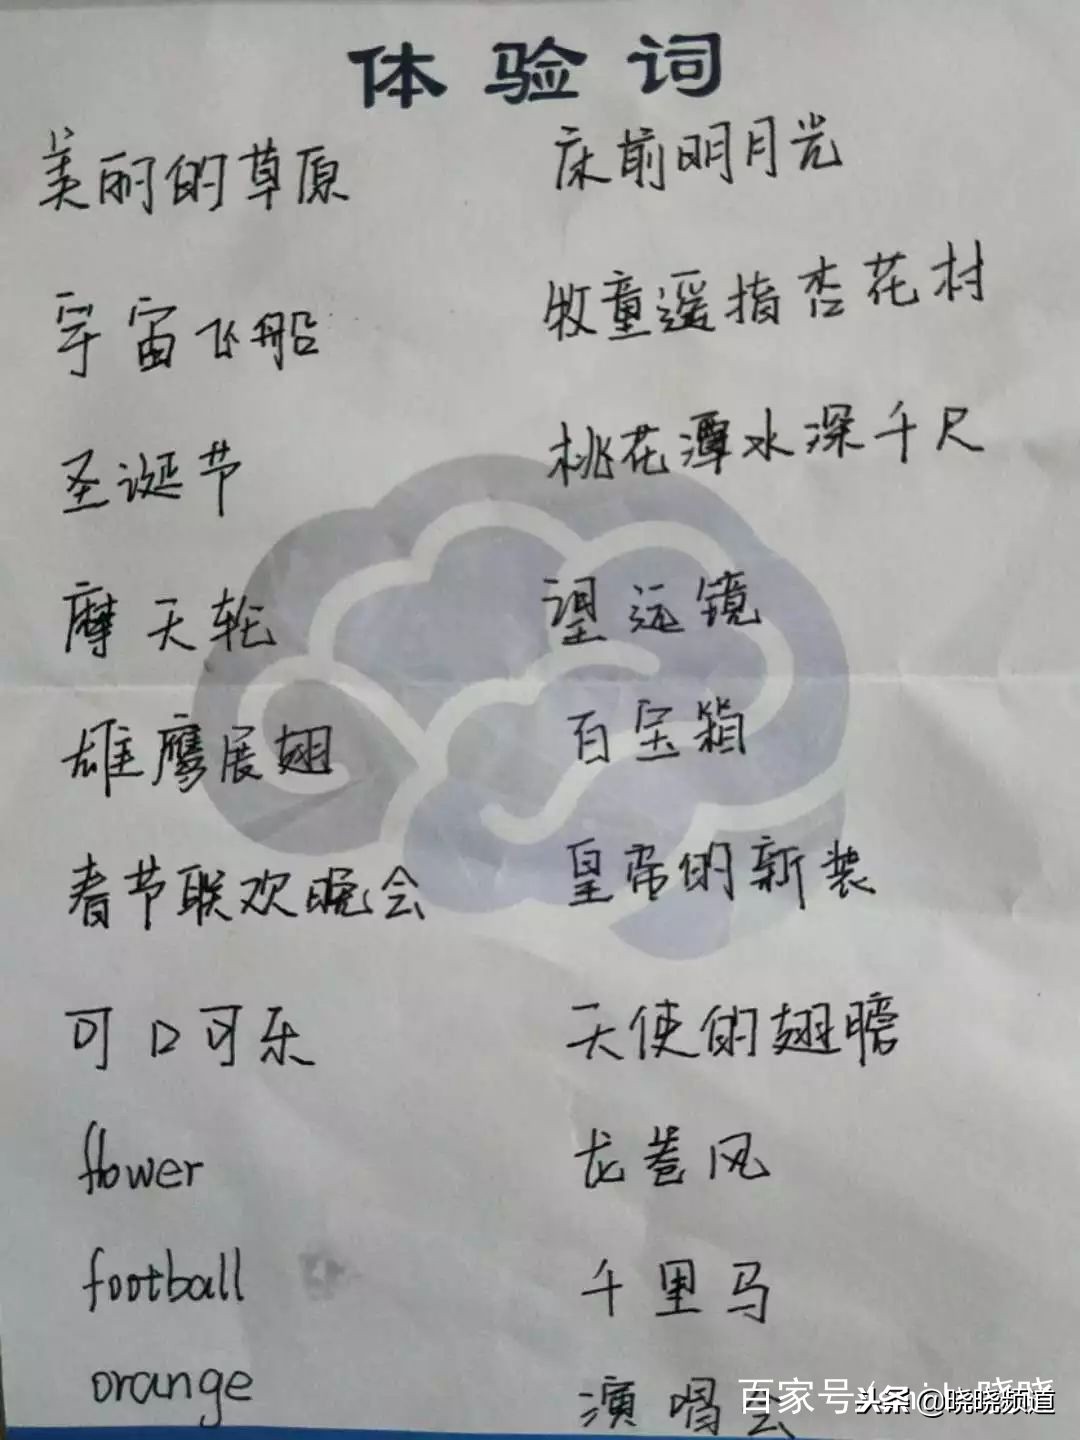 体验词
美丽的草原
宇宙飞船
圣诞节
摩天轮
雄鹰展翅
春节联欢晚会
可口可乐
flower
football
orange
床前明月光
牧童遥指杏花村
桃花潭水深千尺
望远镜
百宝箱
皇帝的新装
天使的翅膀
龙卷风
千里马
演唱会
头条@晓晓频道